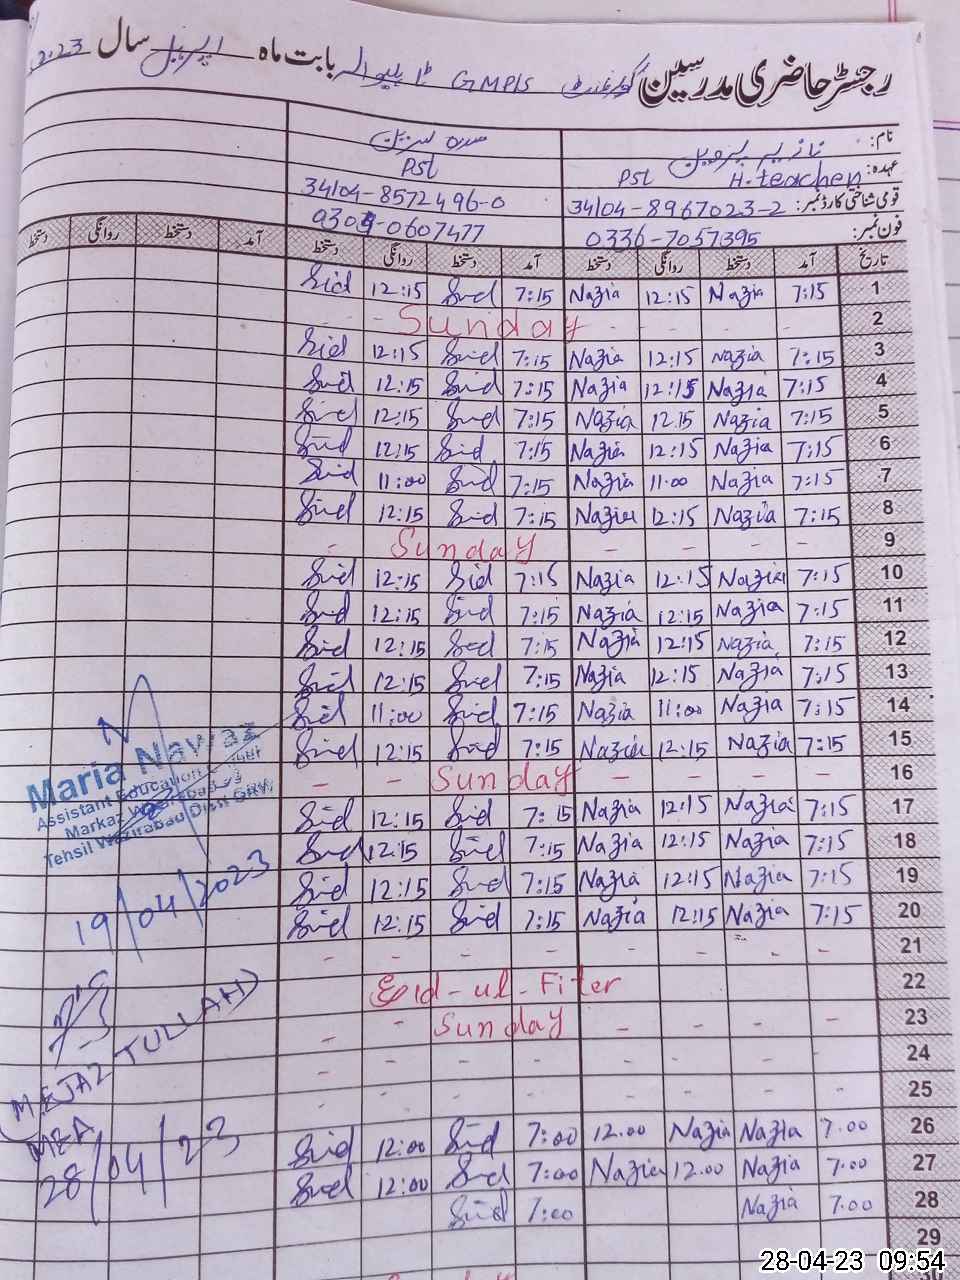 رجسٹر حاضری مدرسین گورنمنٹ GMPS بابت ماہ اپریل سال 2023
نام: نازیہ پروین سدرہ
عہدہ: H.teacher PST PST
قومی شناختی کارڈ نمبر: 34104-8967023-2 34104-8572496-0
فون نمبر: 0336-7057395 0309-0607477
تاریخ آمد دستخط روانگی دستخط آمد دستخط روانگی دستخط آمد دستخط روانگی دستخط
1 7:15 Nazia 12:15 Nazia 7:15 Sid 12:15 Sid
2 - - - - Sunday - -
3 7:15 Nazia 12:15 Nazia 7:15 Sid 12:15 Sid
4 7:15 Nazia 12:15 Nazia 7:15 Sid 12:15 Sid
5 7:15 Nazia 12.15 Nazia 7:15 Sid 12:15 Sid
6 7:15 Nazia 12:15 Nazia 7:15 Sid 12:15 Sid
7 7:15 Nazia 11.00 Nazia 7:15 Sid 11:00 Sid
8 7:15 Nazia 12:15 Nazia 7:15 Sid 12:15 Sid
9 - - - - Sunday -
10 7:15 Nazia 12:15 Nazia 7:15 Sid 12:15 Sid
11 7:15 Nazia 12:15 Nazia 7:15 Sid 12:15 Sid
12 7:15 Nazia 12:15 Nazia 7:15 Sid 12:15 Sid
13 7:15 Nazia 12:15 Nazia 7:15 Sid 12:15 Sid
14 7:15 Nazia 11:00 Nazia 7:15 Sid 11:00 Sid
15 7:15 Nazia 12:15 Nazia 7:15 Sid 12:15 Sid
16 - - - - Sunday - -
17 7:15 Nazia 12:15 Nazia 7:15 Sid 12:15 Sid
18 7:15 Nazia 12:15 Nazia 7:15 Sid 12:15 Sid
19 7:15 Nazia 12:15 Nazia 7:15 Sid 12:15 Sid
20 7:15 Nazia 12:15 Nazia 7:15 Sid 12:15 Sid
21 - - - - - - - -
22 Eid-ul-Fiter
23 - - - - Sunday - -
24 - - - - - - - -
25 - - - - - - - -
26 7.00 Nazia Nazia 12.00 7:00 Sid 12:00 Sid
27 7.00 Nazia 12.00 Nazia 7:00 Sid 12:00 Sid
28 7.00 Nazia 7:00 Sid
29
Maria Nawaz
Assistant Education Officer
Markaz Wazirabad
Tehsil Wazirabad Distt GRW.
19/04/2023
M.EJAZ TULLAH
MEA
28/04/23
28-04-23 09:54